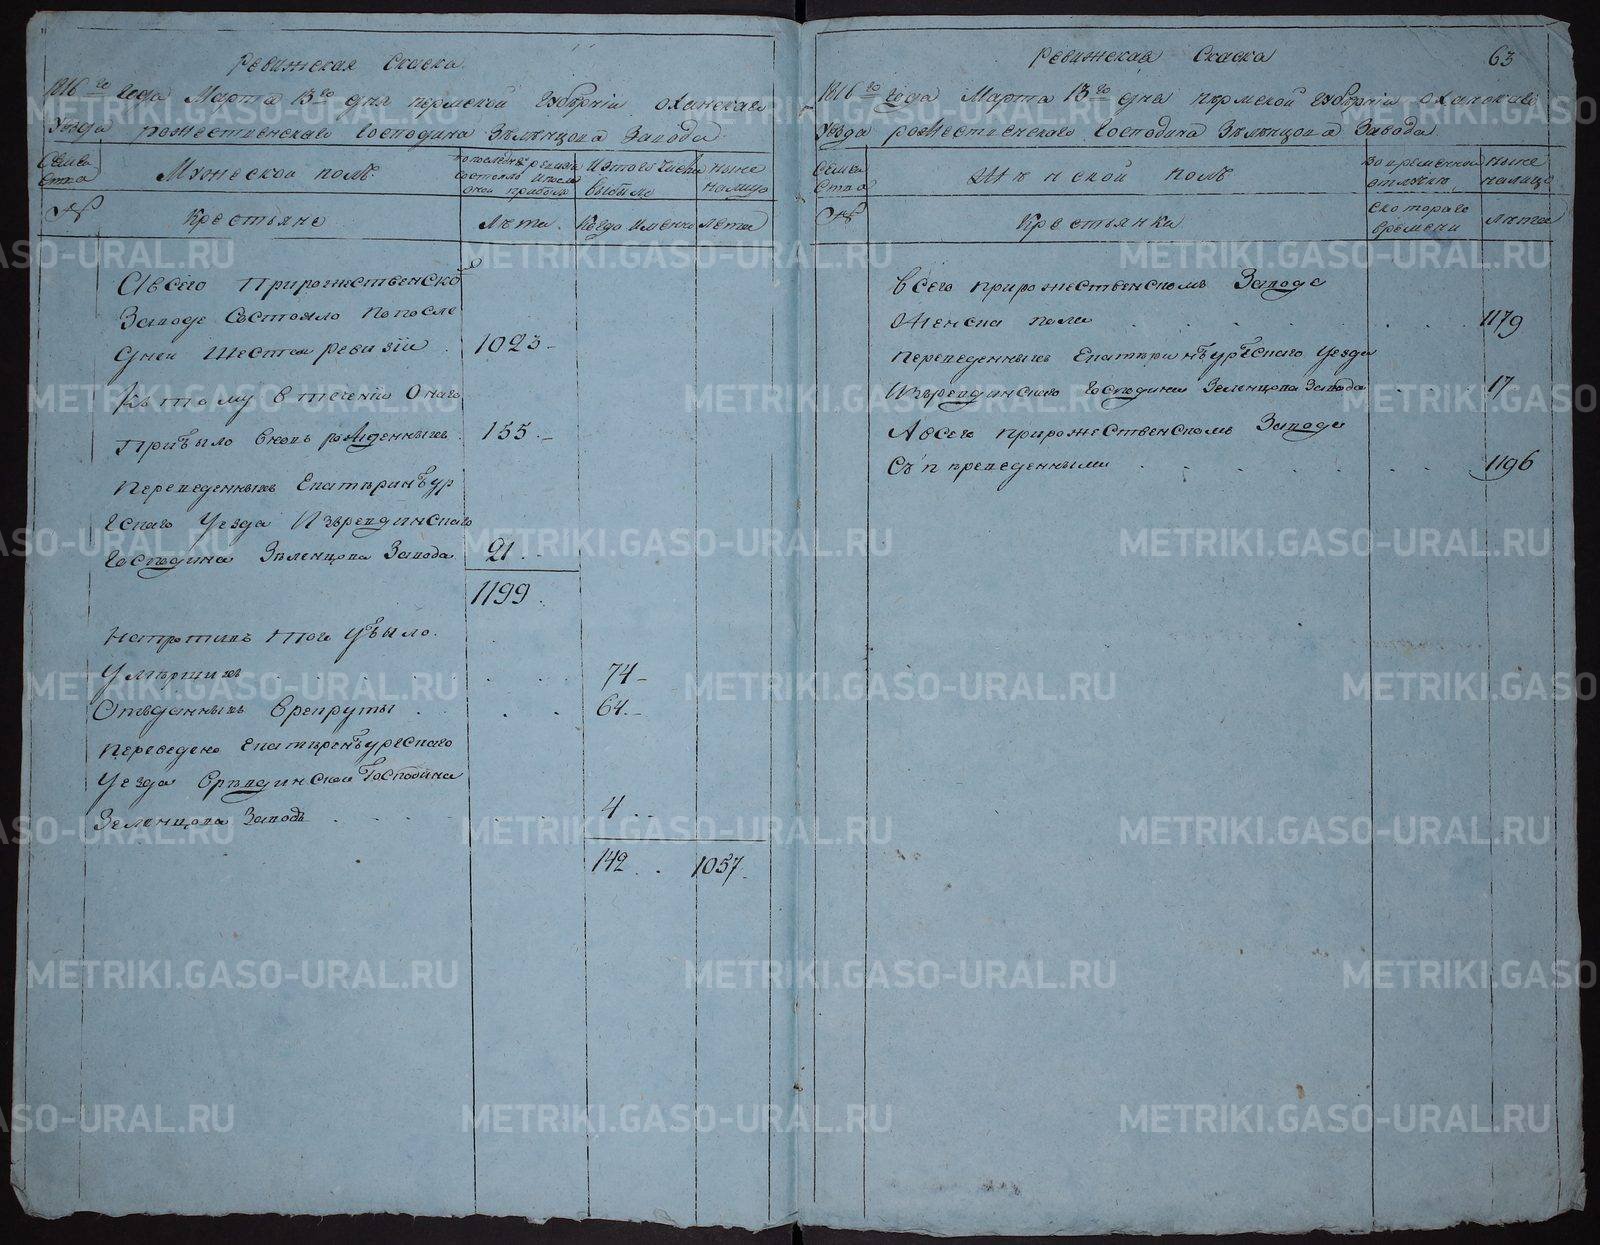 Ревижская Скаска
1816го года Марта 13го дня пермской губерніи оханскаго
Уезда рожественскаго Господина Зѣлѣнцова Завода
Семейства
Мужеской полъ
по последней ревизіи состояло и после оной прибыло
Изтого числа выбыло
ныне налицо
№
Крестьяне
Лѣта
Когда именно
лѣта
Авсего Прирожественской
Заводе Състояло попосле
дней Шестой ревизіи 1023
Къ тому втеченіи Онаго
Прибыло вновь рожденныхъ 155
Переведенныхъ Екатѣринбур
гскаго Уезда Изъревдинскаго
Господина Зѣленцова Завода 21
1199
Напротивъ того Убыло
Умѣршихъ 74
Отъданныхъ Врекруты 64
Переведено Екатѣренбурскаго
Уезда Врѣвдинской Господина
Зеленцова Заводъ 4
142 1057
Ревижская Скаска 63
1816го года Марта 13го дня пѣрмской губерніи оханскаго
Уезда рожественскаго Господина Зѣлѣнцова Завода
Семейства
Жѣнской полъ
Во временной отлучкѣ
ныне налицо
№
Крестьянки
скотораго времени
лѣта
Всего прирожественскомъ Заводе
Женска пола 1179
переведенныхъ Екатѣринбургскаго Уезда
Изъревдинскаго Господина Зеленцова Завода 17
Авсего прирожественскомъ Заводе
Съ преведенными 1196
METRIKI.GASO-URAL.RU